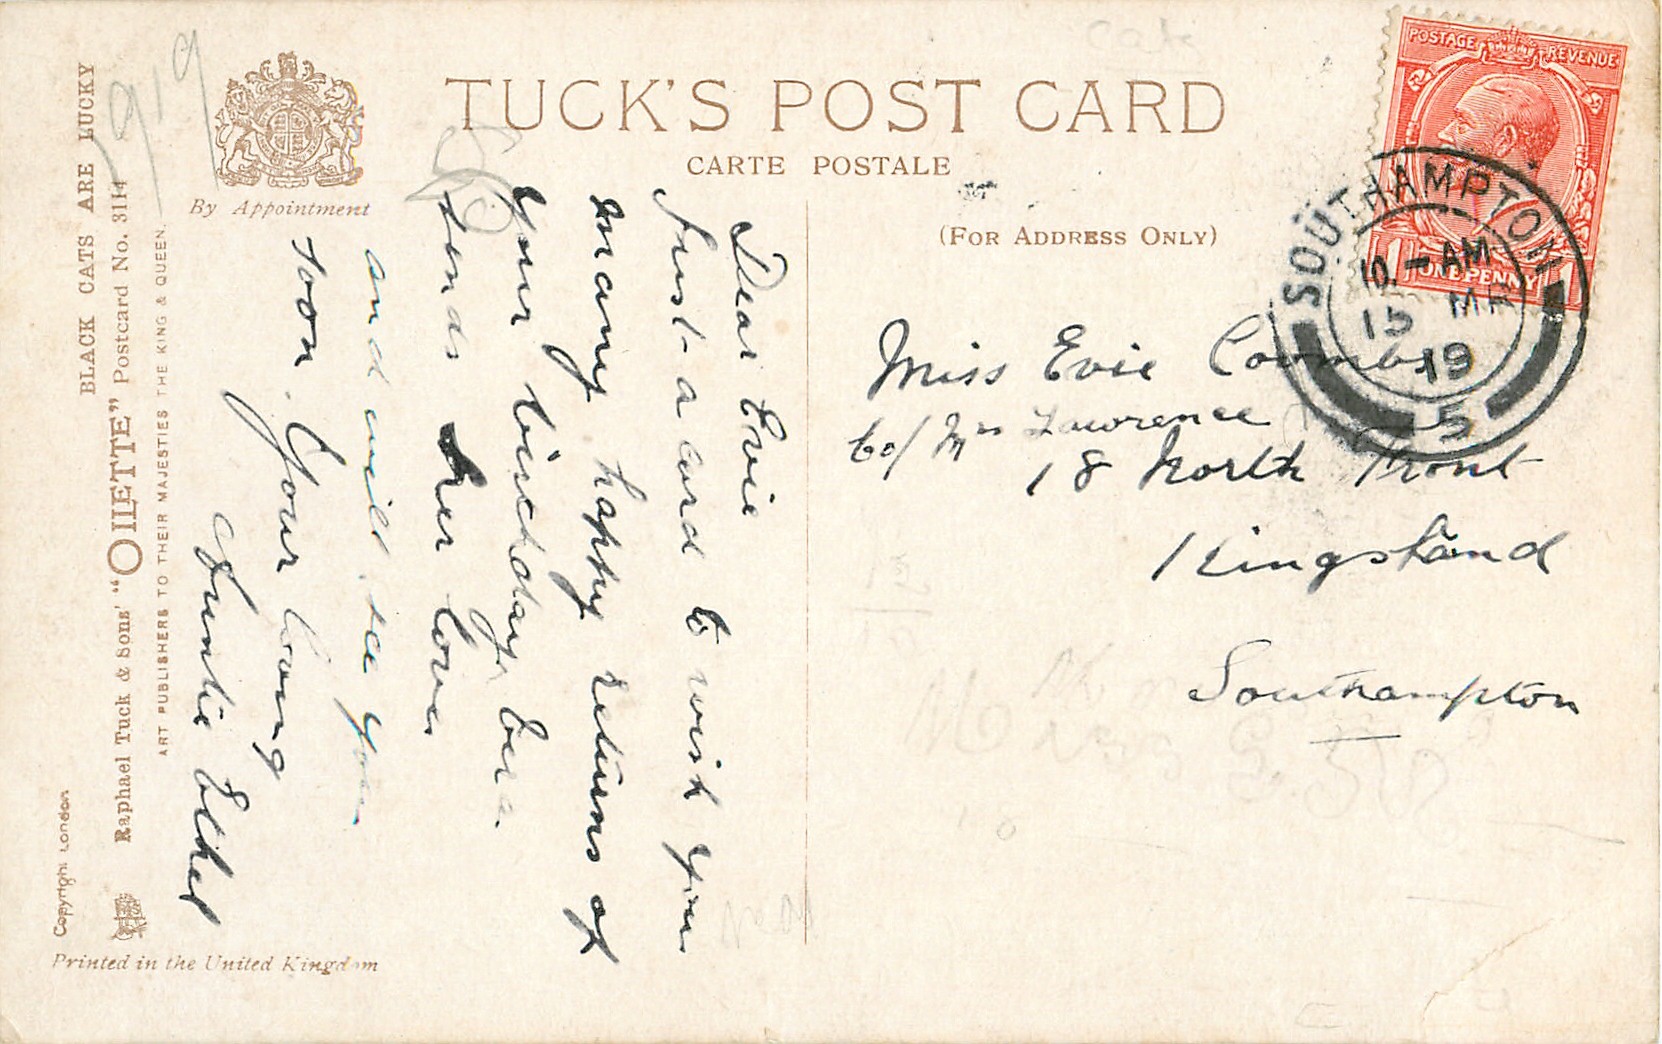 TUCK'S POST CARD
CARTE POSTALE
(FOR ADDRESS ONLY)
By Appointment
BLACK CATS ARE LUCKY
Raphael Tuck & Sons' "OILETTE" Postcard No. 3114
ART PUBLISHERS TO THEIR MAJESTIES THE KING & QUEEN.
Copyright London
Printed in the United Kingdom
1919
Dear Evie
Just a card to wish you
many happy returns of
your birthday
sends her love
and will see you
soon. Your loving
Auntie Ethel
POSTAGE REVENUE
1 ONE PENNY 1
SOUTHAMPTON
10 - AM
15 MR
19
5
Miss Evie Coombs
Co/ Mrs Lawrence
18 North Front
Kingsland
Southampton
Cats